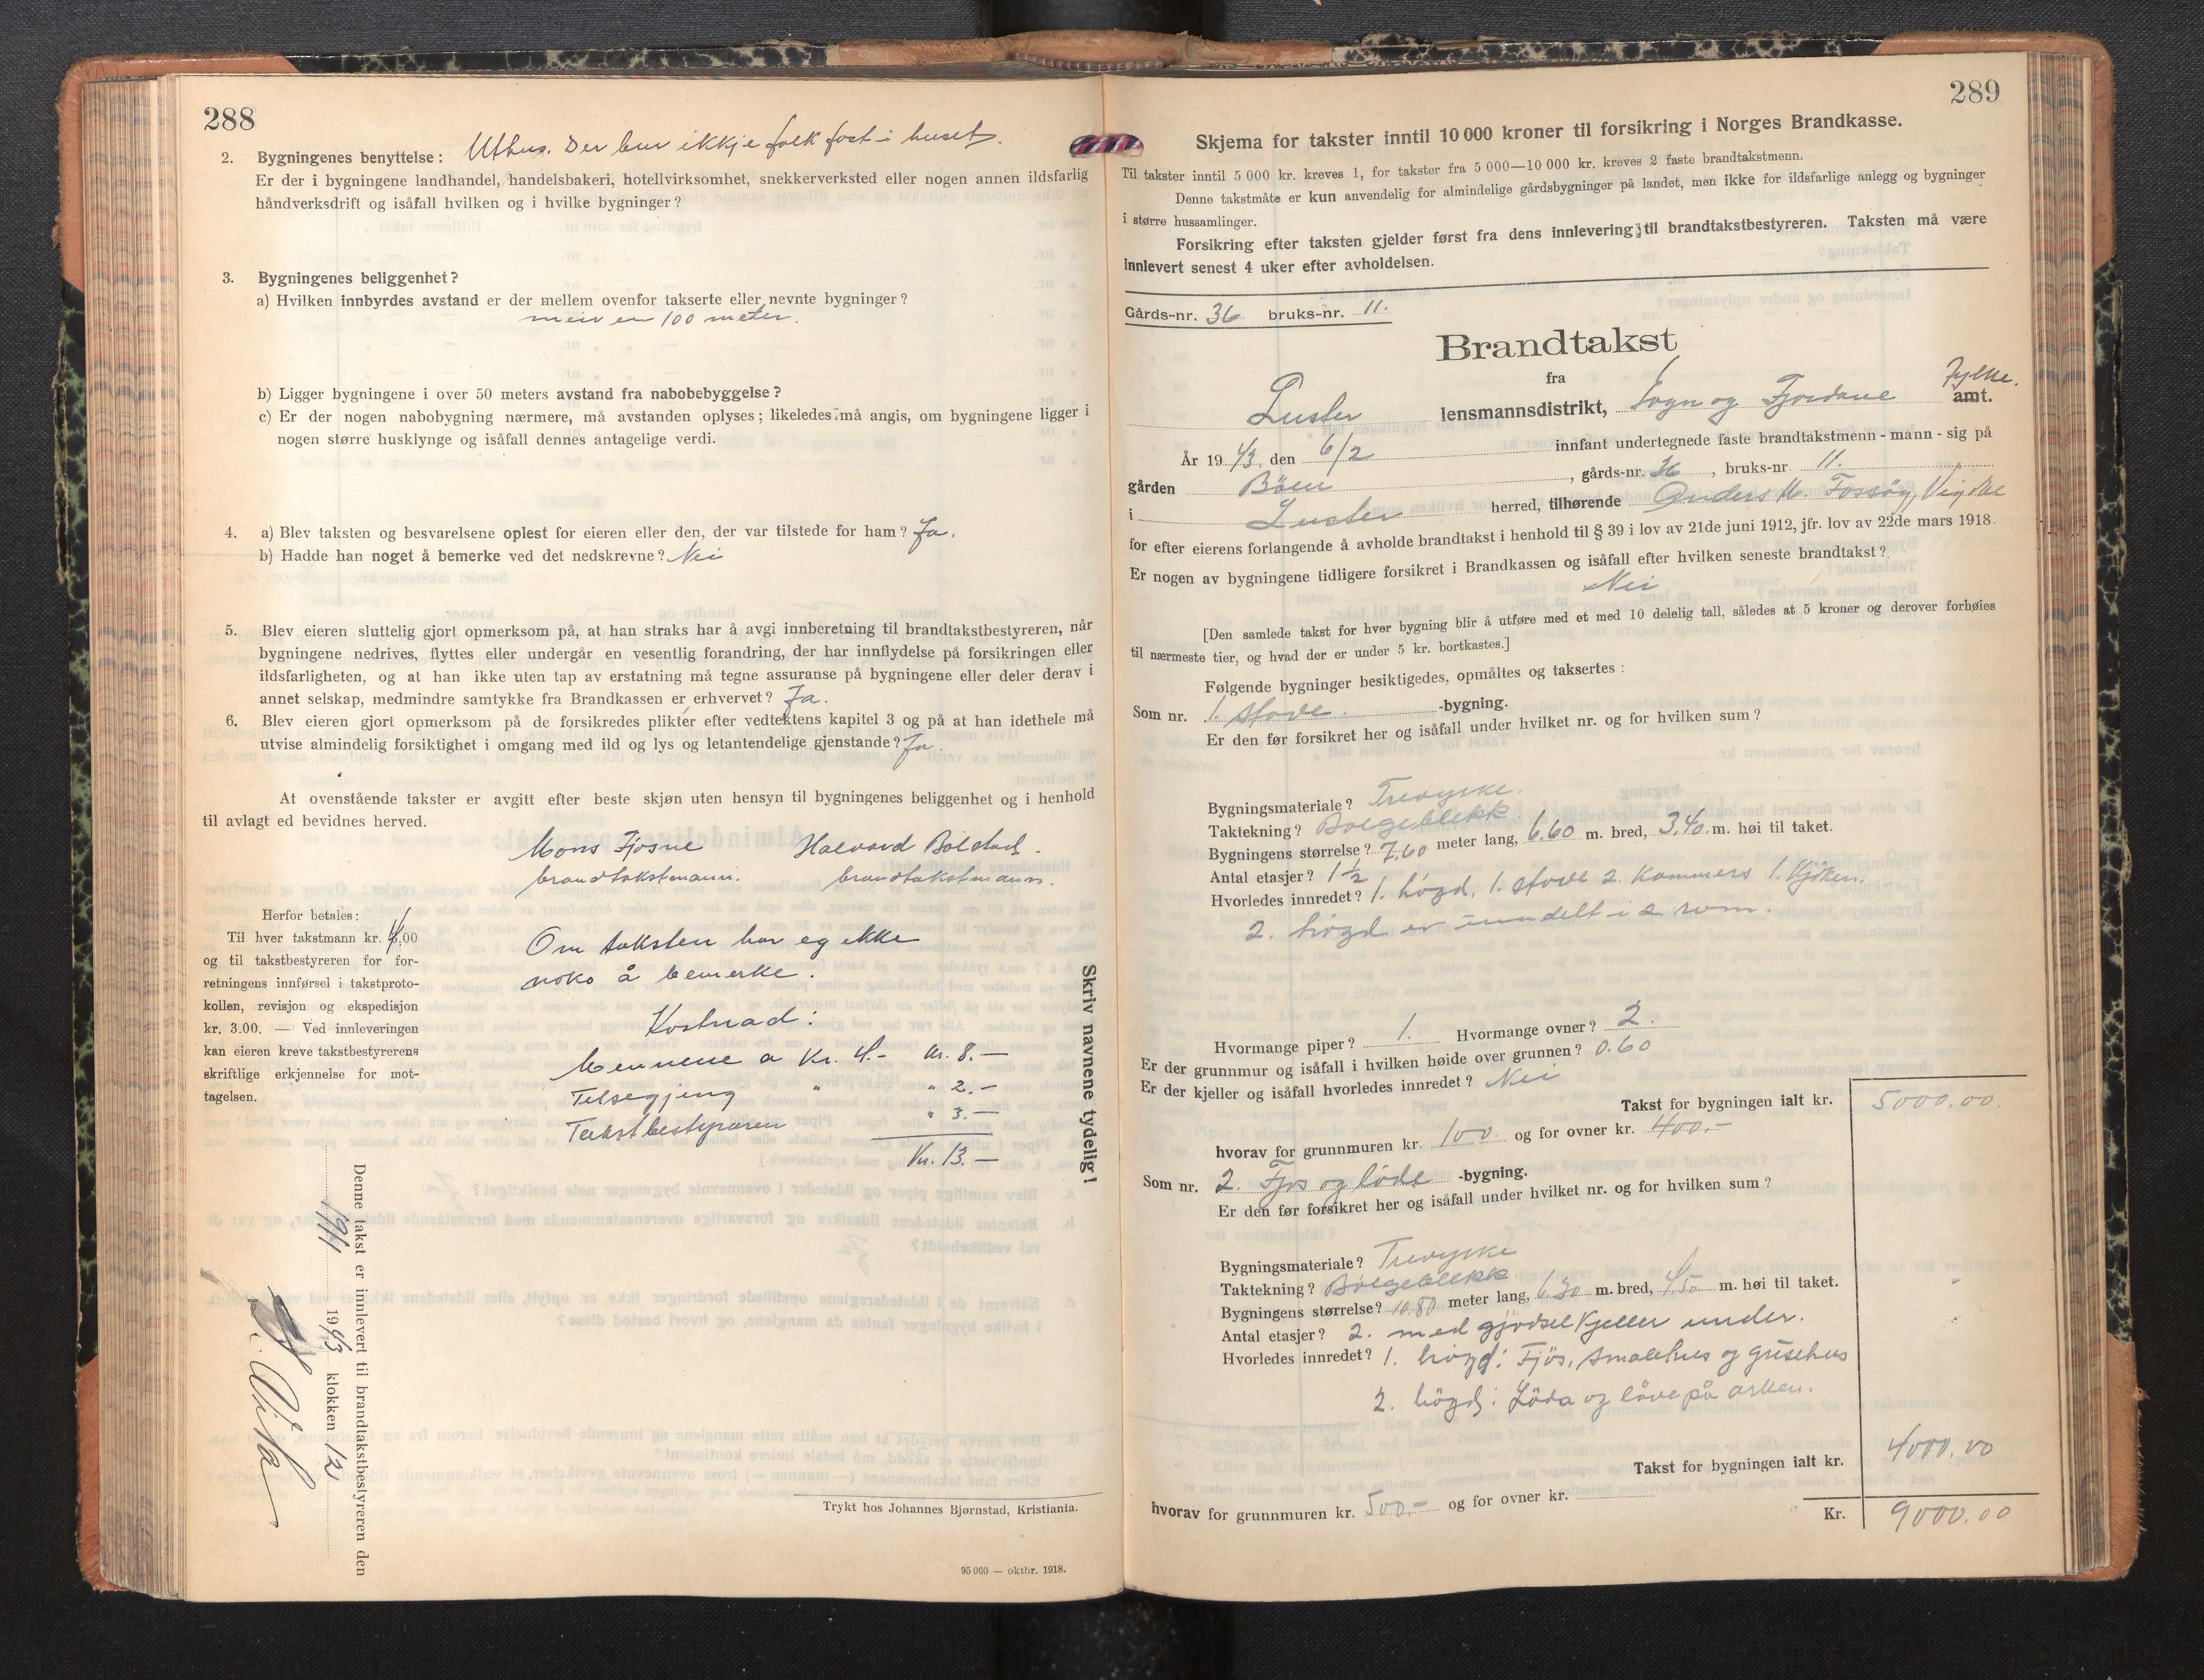 288
2. Bygningenes benyttelse: Uthus. Der bur ikkje folk fast i huset.
Er der i bygningene landhandel, handelsbakeri, hotellvirksomhet, snekkerverksted eller nogen annen ildsfarlig
håndverksdrift og isåfall hvilken og i hvilke bygninger?
3. Bygningenes beliggenhet?
a) Hvilken innbyrdes avstand er der mellem ovenfor takserte eller nevnte bygninger?
meir en 100 meter.
b) Ligger bygningene i over 50 meters avstand fra nabobebyggelse?
c) Er der nogen nabobygning nærmere, må avstanden oplyses; likeledes må angis, om bygningene ligger i
nogen større husklynge og isåfall dennes antagelige verdi.
4. a) Blev taksten og besvarelsene oplest for eieren eller den, der var tilstede for ham? Ja.
b) Hadde han noget å bemerke ved det nedskrevne? Nei
5. Blev eieren sluttelig gjort opmerksom på, at han straks har å avgi innberetning til brandtakstbestyreren, når
bygningene nedrives, flyttes eller undergår en vesentlig forandring, der har innflydelse på forsikringen eller
ildsfarligheten, og at han ikke uten tap av erstatning må tegne assuranse på bygningene eller deler derav i
annet selskap, medmindre samtykke fra Brandkassen er erhvervet? Ja.
6. Blev eieren gjort opmerksom på de forsikredes plikter efter vedtektens kapitel 3 og på at han idethele må
utvise almindelig forsiktighet i omgang med ild og lys og letantendelige gjenstande? Ja.
At ovenstående takster er avgitt efter beste skjøn uten hensyn til bygningenes beliggenhet og i henhold
til avlagt ed bevidnes herved.
Mons Fjøsne Halvard Bolstad.
brandtakstmann. brandtakstmann.
Herfor betales:
Til hver takstmann kr. 4.00
og til takstbestyreren for for-
retningens innførsel i takstproto-
kollen, revisjon og ekspedisjon
kr. 3.00. — Ved innleveringen
kan eieren kreve takstbestyrerens
skriftlige erkjennelse for mot-
tagelsen.
Om taksten har eg ikke
noko å bemerke.
Kostnad:
Mennene a Kr. 4.- Kr. 8.—
Tilsegjing " " 2.-
Takstbestyraren " 3.—
Kr. 13.—
Skriv navnene tydelig!
Denne takst er innlevert til brandtakstbestyreren den
1943 klokken 12
Trykt hos Johannes Bjørnstad, Kristiania.
95 000 — oktbr. 1918.
289
Skjema for takster inntil 10 000 kroner til forsikring i Norges Brandkasse.
Til takster inntil 5 000 kr. kreves 1, for takster fra 5 000—10 000 kr. kreves 2 faste brandtakstmenn.
Denne takstmåte er kun anvendelig for almindelige gårdsbygninger på landet, men ikke for ildsfarlige anlegg og bygninger
i større hussamlinger.
Forsikring efter taksten gjelder først fra dens innlevering til brandtakstbestyreren. Taksten må være
innlevert senest 4 uker efter avholdelsen.
Gårds-nr. 36 bruks-nr. 11.
Brandtakst
fra
Luster lensmannsdistrikt, Sogn og Fjordane Fylke. amt.
År 1943. den 6/2 innfant undertegnede faste brandtakstmenn - mann - sig på
gården Böen, gårds-nr. 36, bruks-nr. 11.
i Luster herred, tilhørende Anders M. Fossöy, Vigdal
for efter eierens forlangende å avholde brandtakst i henhold til § 39 i lov av 21de juni 1912, jfr. lov av 22de mars 1918.
Er nogen av bygningene tidligere forsikret i Brandkassen og isåfall efter hvilken seneste brandtakst?
Nei
[Den samlede takst for hver bygning blir å utføre med et med 10 delelig tall, således at 5 kroner og derover forhøies
til nærmeste tier, og hvad der er under 5 kr. bortkastes.]
Følgende bygninger besiktigedes, opmåltes og taksertes:
Som nr. 1. stove. -bygning.
Er den før forsikret her og isåfall under hvilket nr. og for hvilken sum?
Bygningsmateriale? Trevyrke.
Taktekning? Bølgeblekk.
Bygningens størrelse? 7.60 meter lang, 6.60 m. bred, 3.40 m. høi til taket.
Antal etasjer? 1½
Hvorledes innredet? 1. högd, 1. stove 2. Kammers 1. Kjöken.
2. högd er inndelt i 2 rom.
Hvormange piper? 1. Hvormange ovner? 2
Er der grunnmur og isåfall i hvilken høide over grunnen? 0.60
Er de kjeller og isåfall hvorledes innredet? Nei
Takst for bygningen ialt kr. 5000.00.
hvorav for grunnmuren kr. 100. og for ovner kr. 400.-
Som nr. 2. Fjös og löde -bygning.
Er den før forsikret her og isåfall under hvilket nr. og for hvilken sum?
Bygningsmateriale? Trevyrke
Taktekning? Bølgeblekk
Bygningens størrelse? 10.80 meter lang, 6.30 m. bred, 4.50 m. høi til taket.
Antal etasjer? 2. med gjödselkjeller under.
Hvorledes innredet? 1. högd: Fjös, smalehus og grisehus
2. högd: Löda og låve på arken.
Takst for bygningen ialt kr. 4000.00
hvorav for grunnmuren kr. 500.- og for ovner kr.
Kr. 9000.00